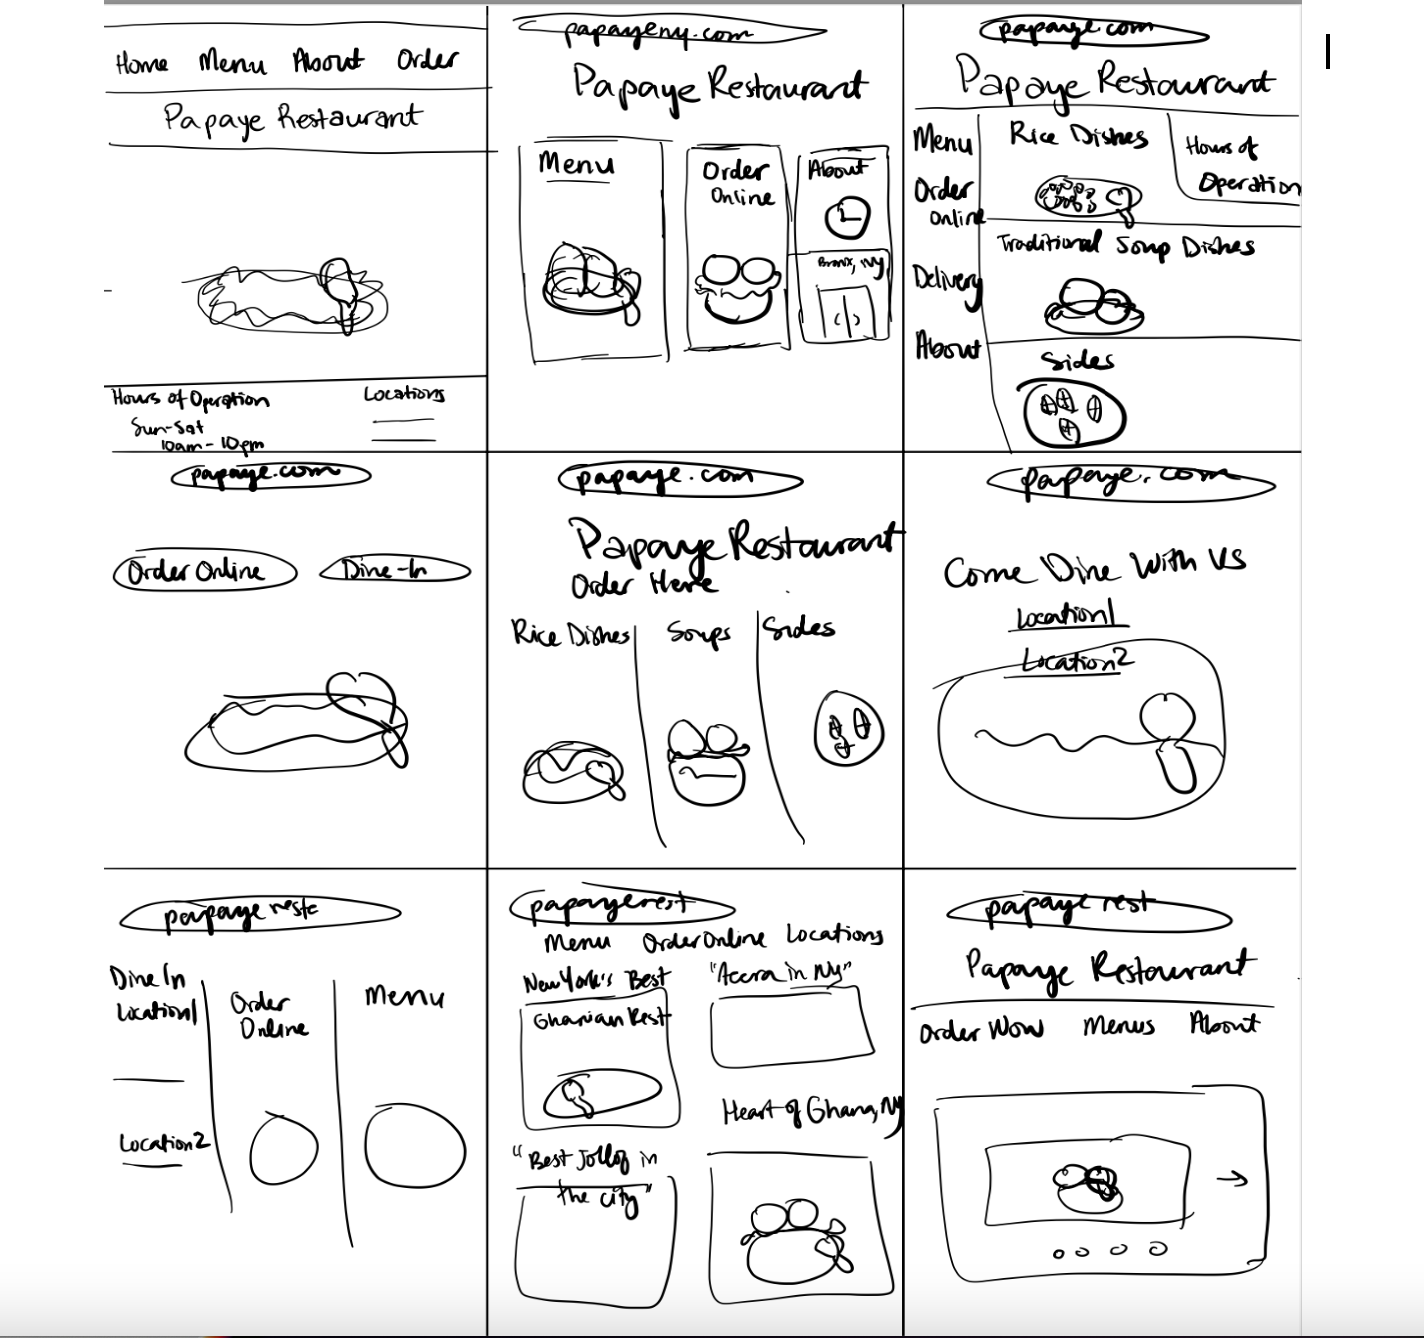 Home Menu About Order
Papaye Restaurant
Hours of Operation
Sun-Sat
10am - 10pm
Locations
papayeny.com
Papaye Restaurant
Menu
Order
Online
About
Bronx, Ny
papaye.com
Papaye Restaurant
Menu
Order
Online
Delivery
About
Rice Dishes
Hours of
Operation
Traditional Soup Dishes
Sides
papaye.com
Order Online
Dine-In
papaye.com
Papaye Restaurant
Order Here
Rice Dishes
Soups
Sides
papaye.com
Come Dine With Us
Location1
Location2
papaye restc
Dine In
Location1
Location2
Order
Online
Menu
papayerest
Menu Order Online Locations
New York's Best
Ghanian Rest
"Accra in Ny"
Heart of Ghana, Ny
"Best Jollof in
the city"
papaye rest
Papaye Restaurant
Order Now Menus About